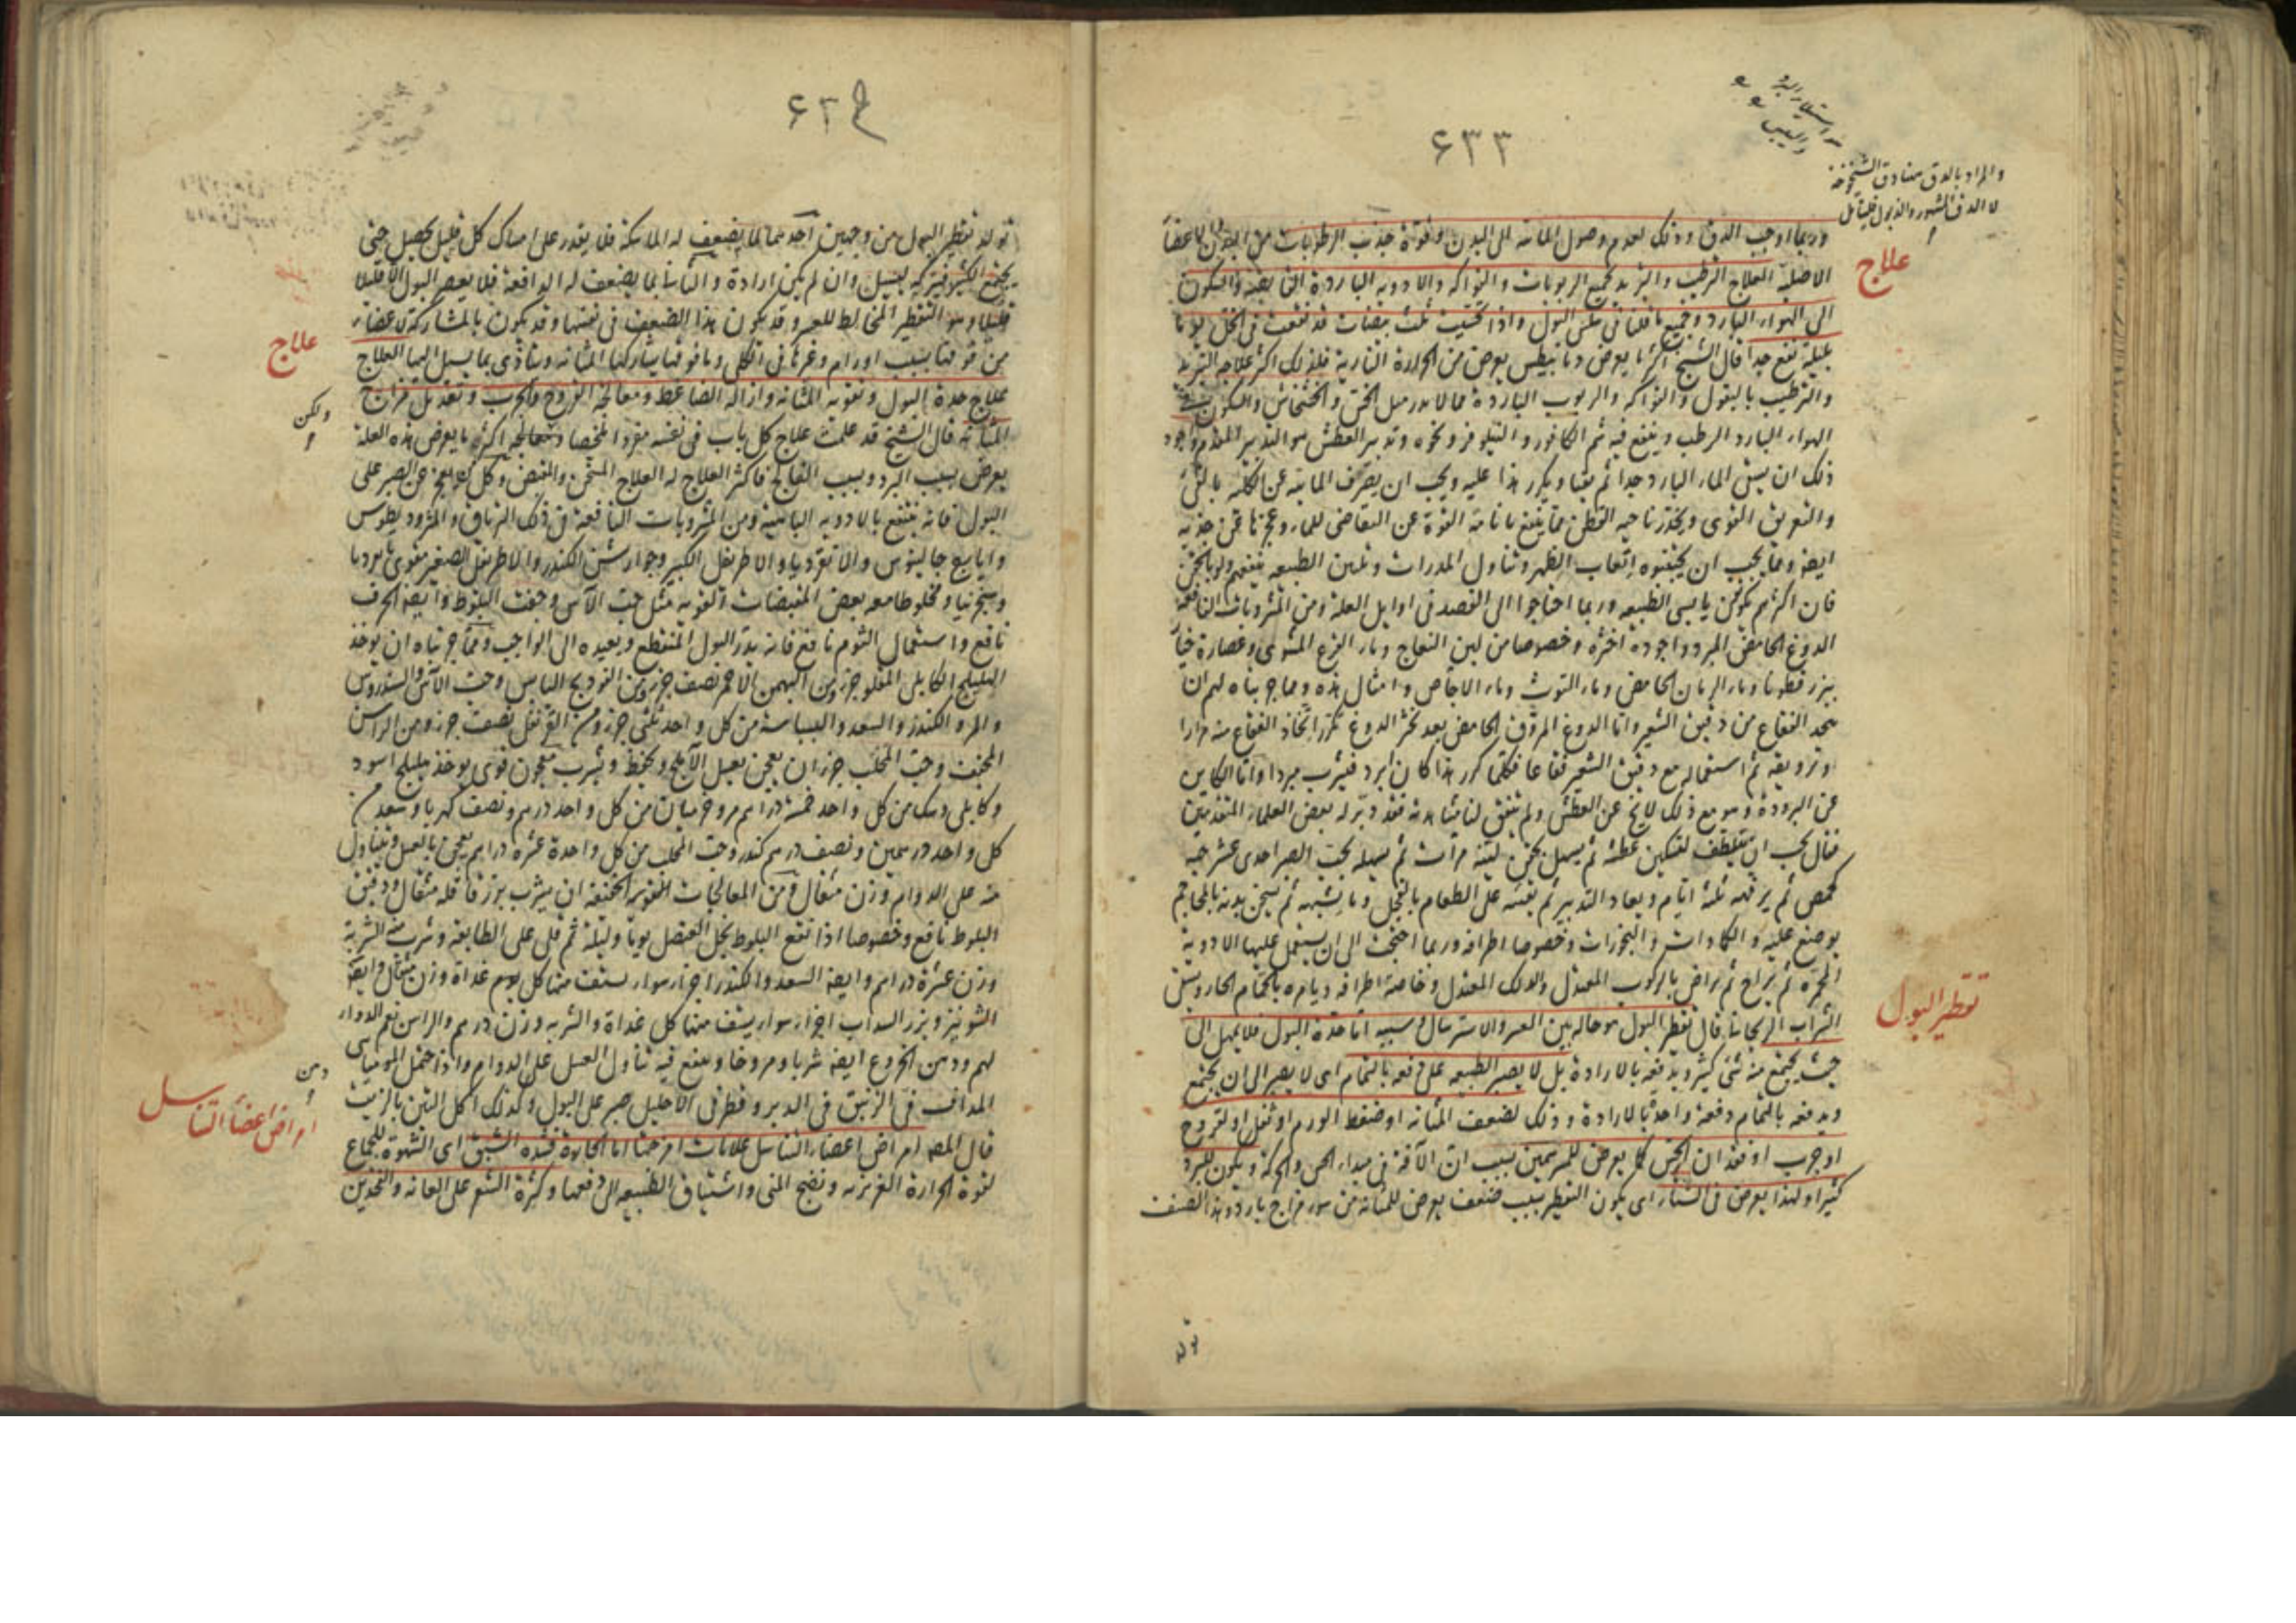 ٦٣٣
والمراد بالدق هنا دق الشيخوخة
لا الدق المشهور والذبول
علاج
وربما اوجب الدق وذلك لعدم وصول المائية الى البدن وقوة جذب الرطوبات من البدن الاعضا
الاصلية العلاج الترطيب والتبريد بجميع الربوبات والفواكه والادوية الباردة القابضة والسكون
الى الهواء البارد وجميع ما قلنا فى سلس البول واذا تحسيت ثلث بيضات قد نقعت فى الخل يوما
بليلة نفع جدا قال الشيخ اكثر ما يعرض ديابيطس يعرض من الحرارة النارية فلذلك اكثر علاجه التبريد
والترطيب بالبقول والفواكه والربوب الباردة مما لا يدر مثل الخس والخشخاش والسكون
الهواء البارد الرطب وينفع فيه شم الكافور والنيلوفر ونحوه وتدبير العطش هو التدبير المقدم واجود
ذلك ان يسقى الماء البارد جدا ثم يقيا ويكرر هذا عليه ويجب ان يصرف المائية عن الكلية بالقئ
والتعريق القوى ويخدر ناحية القطن مما ينفع بانامة القوة عن التقاضى للماء وعجزها عن جذبه
ايضا ومما يجب ان يجتنبوه اتعاب الظهر وتناول المدرات وتليين الطبيعه ينفعهم ولو بالحقن
فان اكثرهم يكونون يابسى الطبيعه وربما احتاجوا الى الفصد فى اوايل العلة ومن المشروبات النافعة
الدوغ الحامض المبرد واجوده اخثره وخصوصا من لبن النعاج وماء القرع المشوى وعصارة خيار
ببزر قطونا وماء الرمان الحامض وماء التوث وماء الاجاص وامثال هذه ومما جربناه لهم ان
يتخذ الفقاع من دقيق الشعير واما الدوغ المروق الحامض بعد تخثر الدوغ تكرر اتخاذ الفقاع منه مرارا
وترويقه ثم استعماله مع دقيق الشعير فقاعا فكلما كرر هذا كان ابرد فيشرب مبردا
عن البرودة وهو مع ذلك لا يخ عن العطش ولم يتفق لنا مشاهدته فقد دبر له بعض العلماء المتقدمين
فقال يجب ان يتلطف لتسكين عطشه ثم يسهل بحقن لينة مرات ثم يسهله بحب الصبر احدى عشر حبة
كحمص ثم يرفهه ثلثة ايام ويعاد التدبير ثم يقيئه على الطعام بالفجل وما يشبهه ثم يسخن بدنه بالمحاجم
يوضع عليه والكمادات والبخورات وخصوصا اطرافه وربما احتجت الى ان يستعمل عليها الادوية
المحمرة ثم يراح ثم يراض بالركوب المعتدل والدلك المعتدل وخاصة اطرافه ويامره بالحمام الحار ويسقى
تقطير البول
الشراب الريحانى قال تقطير البول هو حالة بين العسر والاسترسال وسببه اما حدة البول فلا يمهل الى
حيث يجتمع منه شئ كثير ويدفعه بالارادة بل لا يصبر الطبيعه على دفعه بالتمام اى لا يصبر الى ان يجتمع
ويدفعه بالتمام دفعة واحدة بالارادة وذلك لضعف المثانه او ضغط الورم او ثفل او لقروح
او جرب او فقدان الحس كما يعرض للمبرسمين بسبب ان الآفة فى مبداء الحس والحركة ويكون للبرد
كثيرا ولهذا يعرض فى الشتاء اى يكون التقطير بسبب ضعف يعرض للمثانة من سوء مزاج بارد وهذا الصنف
تولد
٦٣٤
تولد تقطير البول من وجهين احدهما لما يضعف له الماسكة فلا يقدر على امساك كل قليل يحصل حتى
يجتمع الكثير فيتركه يسيل وان لم يكن ارادة والثانى لما يضعف له الدافعة فلا يعصر البول الا قليلا
قليلا وهو التقطير المخالط للعسر وقد يكون هذا الضعف فى نفسها وقد يكون بالمشاركة لاعضاء
علاج
من فوقها بسبب اورام وغيرها فى الكلى وما فوقها يشاركها المثانه ويتاذى بما يسيل اليها العلاج
علاج حدة البول وتقوية المثانه وازالة الضاغط ومعالجة القروح والجرب وتعديل مزاج
ولكن
المثانه قال الشيخ قد علمت علاج كل باب فى نفسه مفردا ملخصا ومعالجه اكثر ما يعرض هذه العلة
يعرض بسبب البرد وبسبب الفالج فاكثر العلاج له العلاج المسخن والمقبض وكل من يعجز عن الصبر على
البول فانه ينتفع بالادوية الباهية ومن المشروبات النافعة فى ذلك الترياق والمثروديطوس
وايارج جالينوس والانقرديا والاطريفل الكبير وجوارشن الكندر والاطريفل الصغير مقوى
وسجزنيا ومخلوطا معه بعض المقبضات القوية مثل حب الآس وجفت البلوط وايضا الحرف
نافع واستعمال الثوم نافع فانه يدر البول المنقطع ويعيده الى الواجب ومما جربناه ان يوخذ
الهليلج الكابلى المقلو جزء ومن البهمن الاحمر نصف جزء ومن الفودنج اليابس وحب الآس والسندروس
والمر والكندر والسعد والبسباسة من كل واحد ثلثى جزء ومن القرنفل نصف جزء ومن الراسن
المجفف وحب المحلب جزءان يعجن بعسل الاملج ويحفظ ويشرب معجون قوى يوخذ هليلج اسود
وكابلى وسك من كل واحد خمسة دراهم مر وخرميان من كل واحد درهم ونصف كهربا وسعد من
كل واحد درهمين ونصف درهم كندر وحب المحلب من كل واحدة عشرة دراهم يعجن بالعسل ويتناول
منه على الدوام وزن مثقال ومن المعالجات القوية الخفيفة ان يشرب بزر فاقله مثقال ودقيق
البلوط نافع وخصوصا اذا نقع البلوط بخل العنصل يوما وليلة ثم قلى على الطابقه وشرب منه الشربة
وزن عشرة دراهم وايضا السعد والكندر اجزاء سواء يستف منها كل يوم غداة وزن مثقال وايضا
الشونيز وبزر السداب اجزاء سواء يستف منها كل غداة والشربه وزن درهم والراسن نعم الدواء
لهم ودهن الخروع ايضا شربا ومروخا وينفع فيه تناول العسل على الدوام واذا حمل الموميائى
دهن
المداف فى الزنبق فى الدبر وقطر فى الاحليل صبر على البول وكذلك اكل التين بالزيت
امراض اعضاء التناسل
قال المصه امراض اعضاء التناسل علامات امزجتها اما الحارة فشدة الشبق اى الشهوة للجماع
لقوة الحرارة الغريزيه ونضج المنى واشتياق الطبيعه الى دفعها وكثرة الشعر على العانه والفخذين